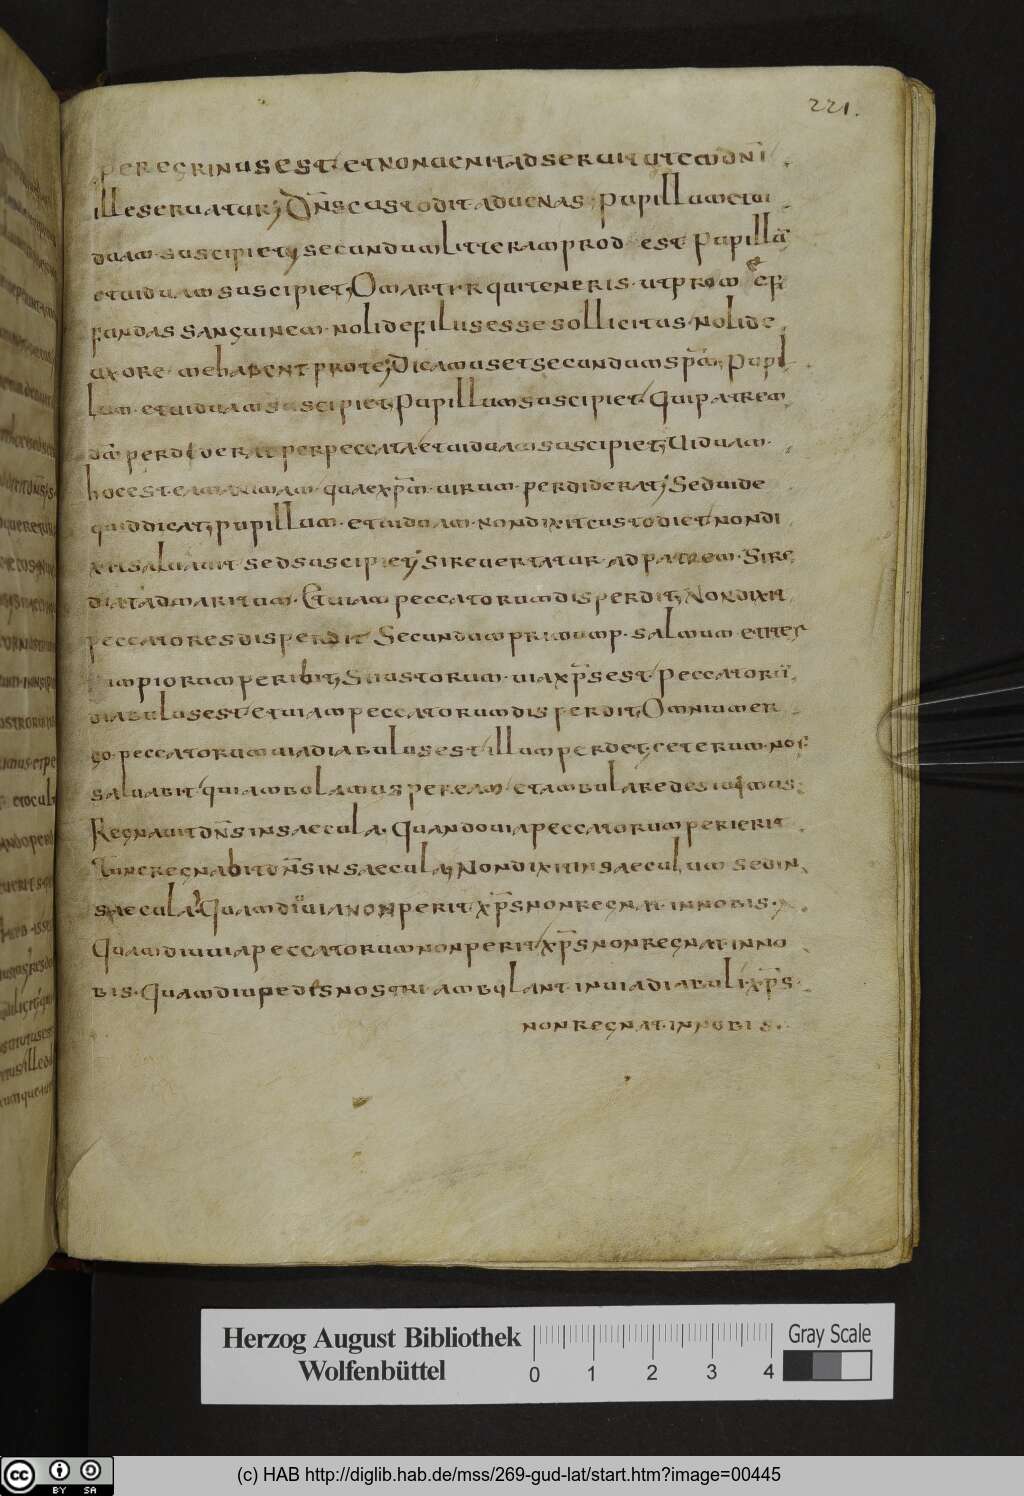 221.
peregrinus est. et non uenit ad seruitutem dn̄i
ille seruatur; Dn̄s custodit aduenas; pupillum et ui
duam suscipiet; secundum litteram prod est pupillū
et uiduam suscipiet; O martyr qui teneris. ut pro xp̄o
fundas sanguinem. noli de filiis esse sollicitus. noli de
uxore habent pro te; Dicamus et secundum sp̄m; pupil
lum. et uiduam suscipiet; Pupillum suscipiet. Qui patrem
dm̄ perdiderat per peccata. et uiduam suscipiet; Uiduam.
hoc est eam animam. quae xp̄m uirum. perdiderat; Sed uide
quid dicat; pupillum. et uiduam. non dixit custodiet. non di
xit saluauit sed suscipiet; si reuertatur ad patrem. Si re
diat ad maritum. Et uiam peccatorum disperdit; Non dixit
peccatores disperdit Secundum primum p. salmum et iter
impiorum peribit; Si iustorum. uia xp̄s est. Peccatorū
diabulus est. et uiam peccatorum disperdit; Omnium er
go. peccatorum uia diabulus est. illum perdet; ceterum. nos
saluabit. qui ambolamus per eam. et ambulare desiuimus;
Regnauit dn̄s in saecula. Quando uia peccatorum perierit
Tunc regnabit dn̄s in saecula; Non dixit in saeculum sed in
saecula. Quamdiu uia non perit. xp̄s non regnat. in nobis.
Quamdiu uia peccatorum non perit. xp̄s non regnat. in no
bis. Quamdiu pedes nostri. ambulant. in uia diabuli. xp̄s.
non regnat. in nobis.
Herzog August Bibliothek
Wolfenbüttel
0 1 2 3 4
Gray Scale
cc BY SA
(c) HAB http://diglib.hab.de/mss/269-gud-lat/start.htm?image=00445